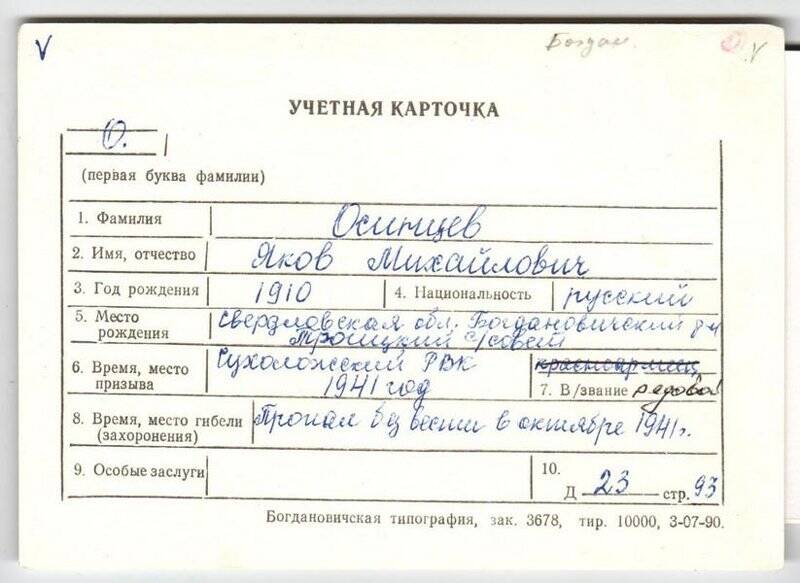 V
Богдан.
V
УЧЕТНАЯ КАРТОЧКА
О.
(первая буква фамилии)
1. Фамилия Осинцев
2. Имя, отчество Яков Михайлович
3. Год рождения 1910 4. Национальность русский
5. Место рождения Свердловская обл. Богдановичский р-н
Троицкий с/совет
6. Время, место призыва Сухоложский РВК
1941 год
красноармеец
7. В/звание рядовой
8. Время, место гибели (захоронения) Пропал без вести в октябре 1941 г.
9. Особые заслуги
10.
Д 23 стр. 93
Богдановичская типография, зак. 3678, тир. 10000, 3-07-90.